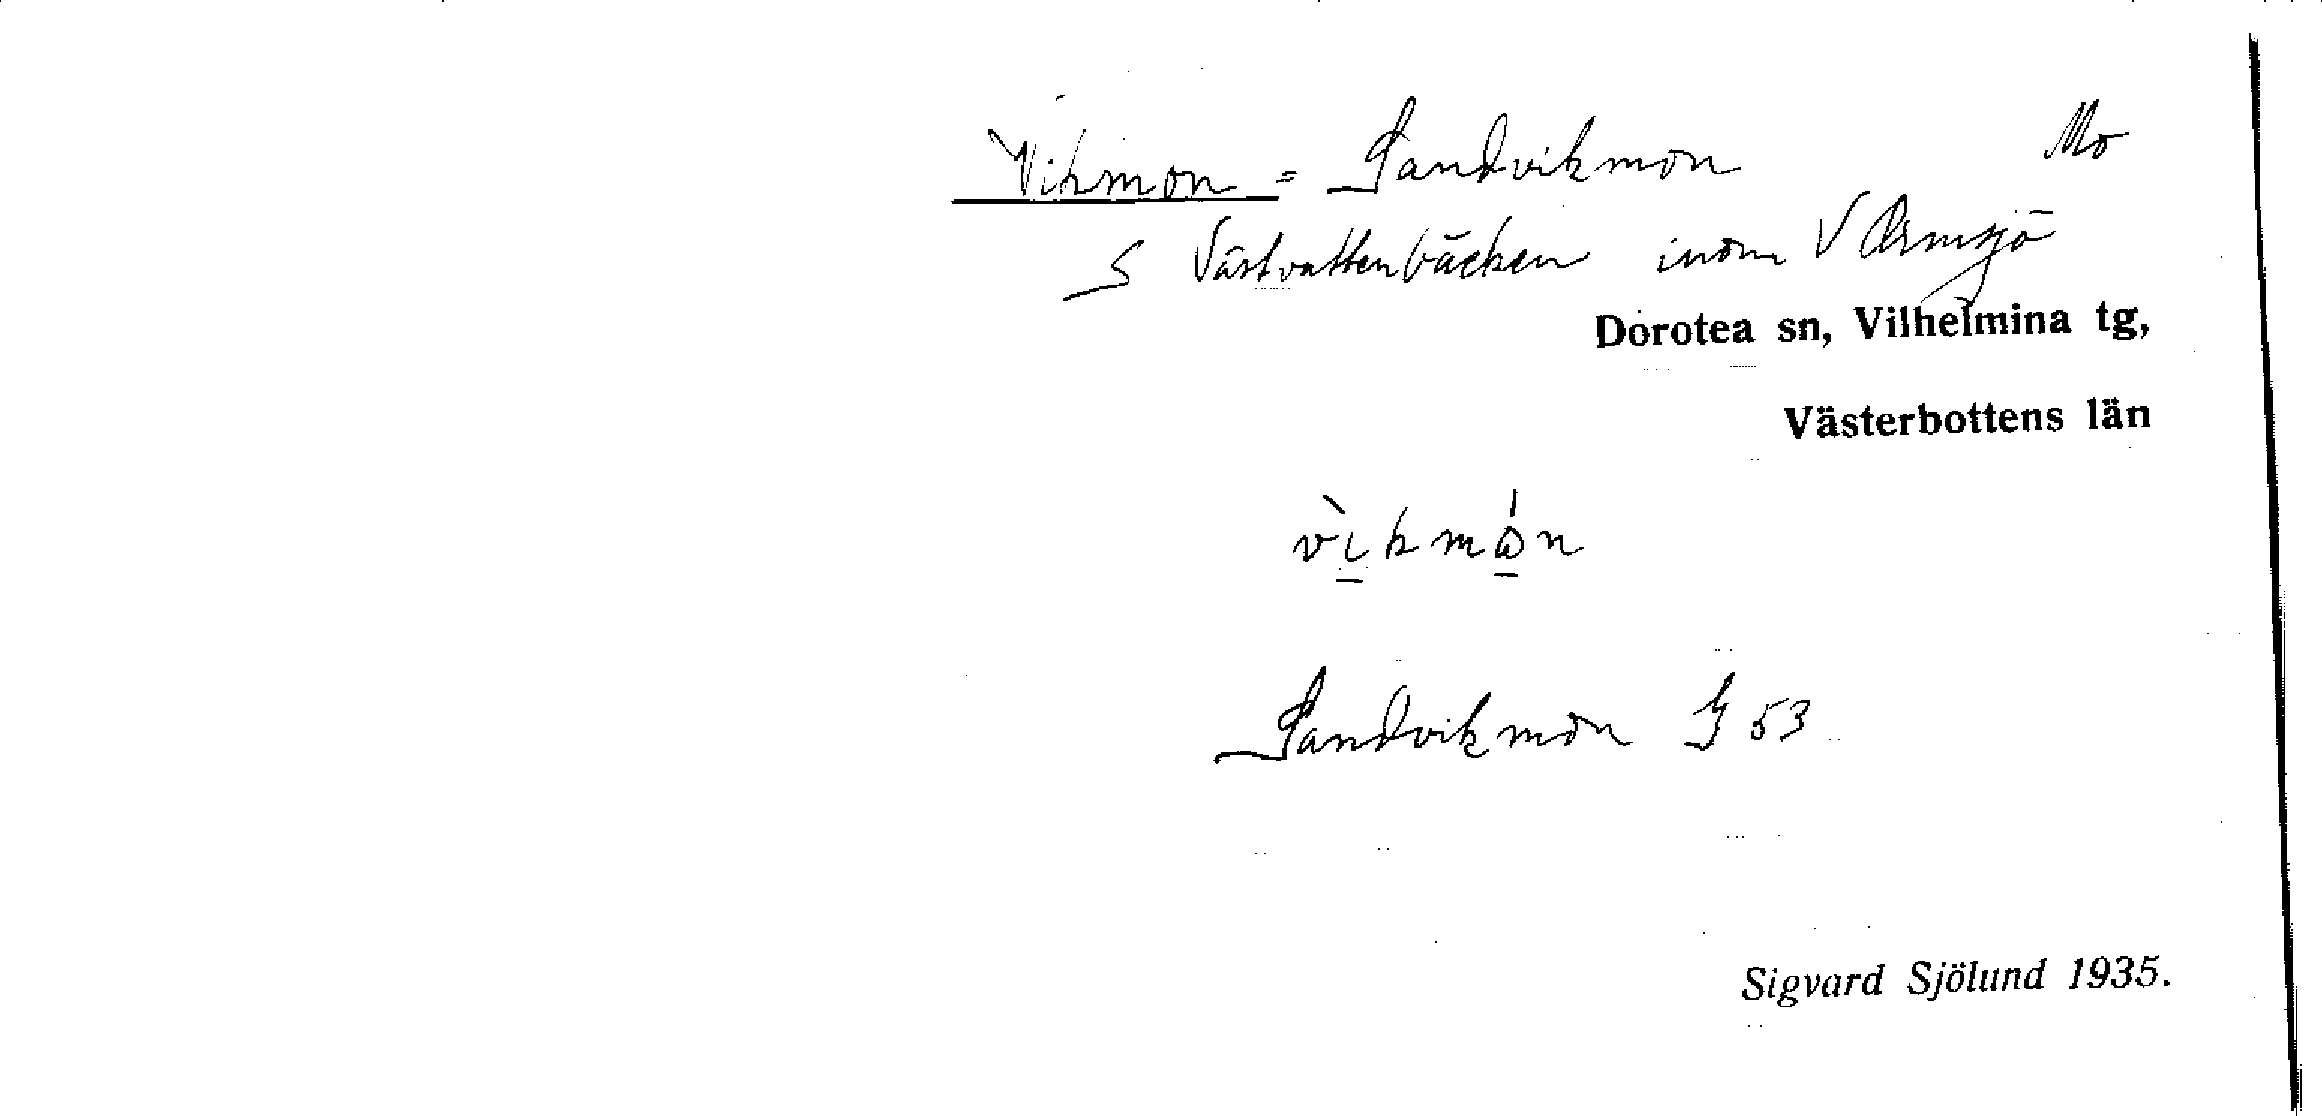 Vikmon = Sandvikmon Mo
S Västvattenbäcken inom V Ormsjö
Dorotea sn, Vilhelmina tg,
Västerbottens län
Sandvikmon G 53
Sigvard Sjölund 1935.